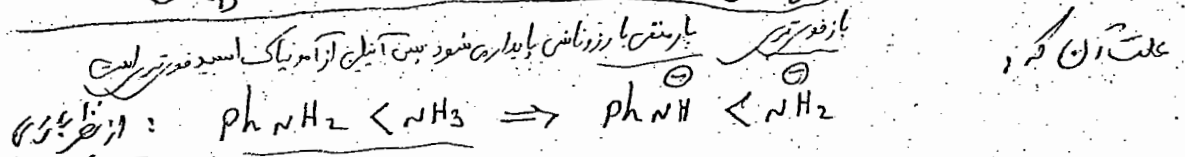 علت آن که، بار منفی با رزونانس پایدار می‌شود پس آنیلین از آمونیاک اسید قوی‌تری است باز قوی‌تری
از نظر بازی : PhNH₂ < NH₃ ⇒ PhNH⊖ < NH₂⊖